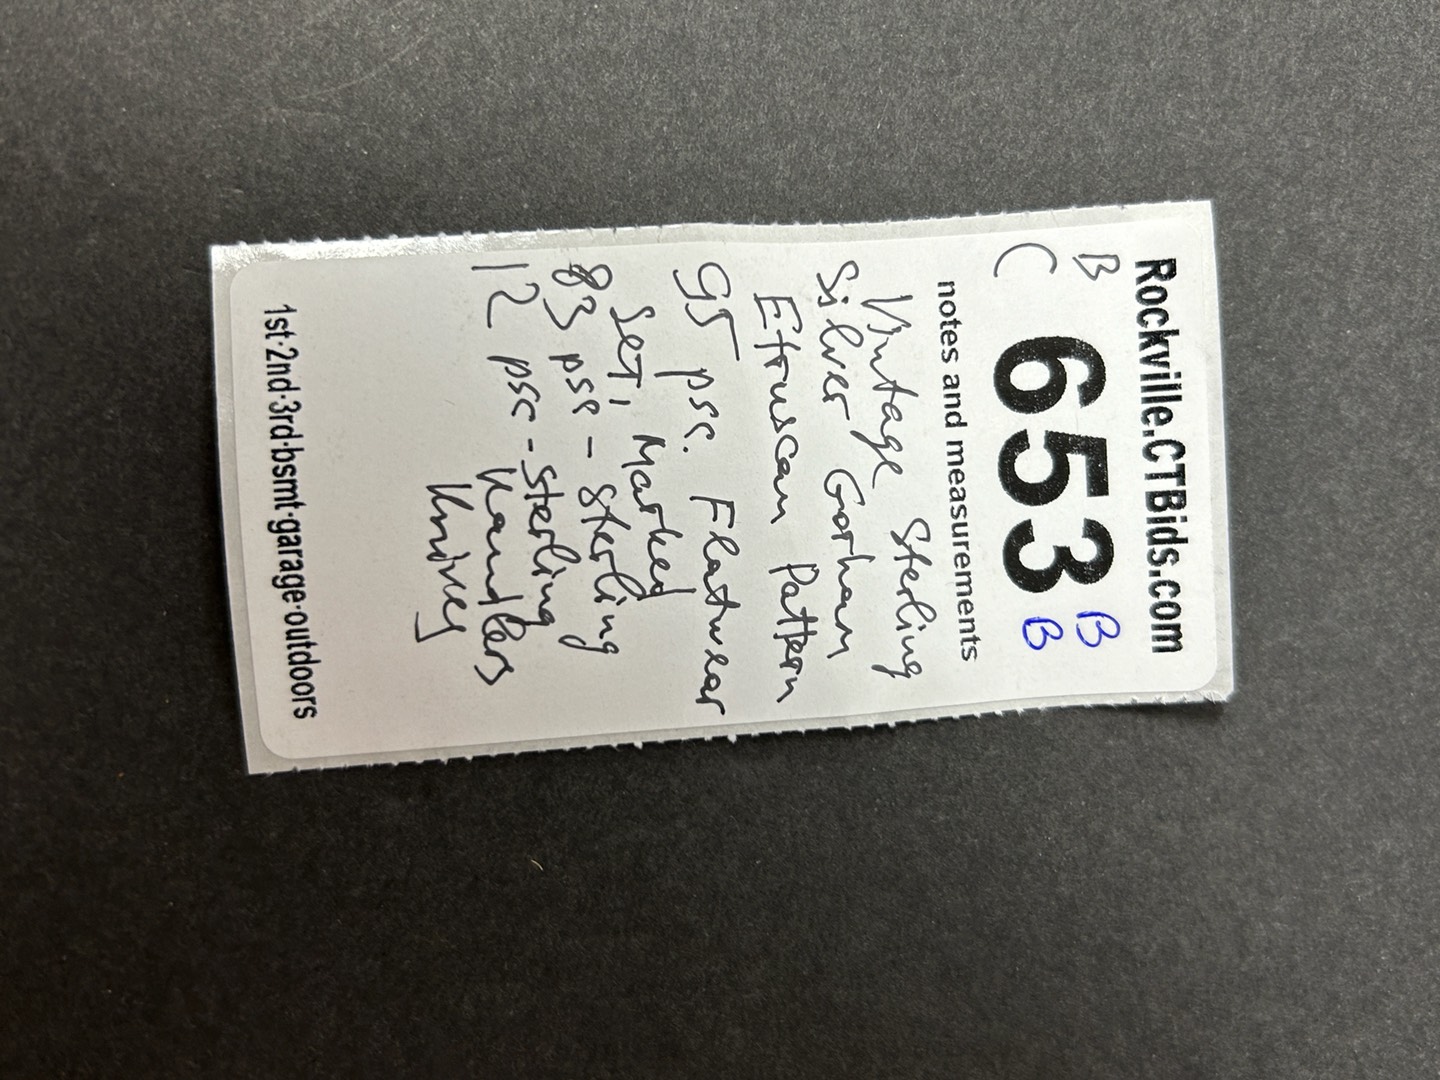 Rockville.CTBids.com
B 653 B
C B
notes and measurements
Vintage Sterling
Silver Gorham
Etruscan Pattern
95 psc. Flatwear
Set, Marked
83 pse - Sterling
12 psc - Sterling
Handlers
Knives
1st·2nd·3rd·bsmt·garage·outdoors